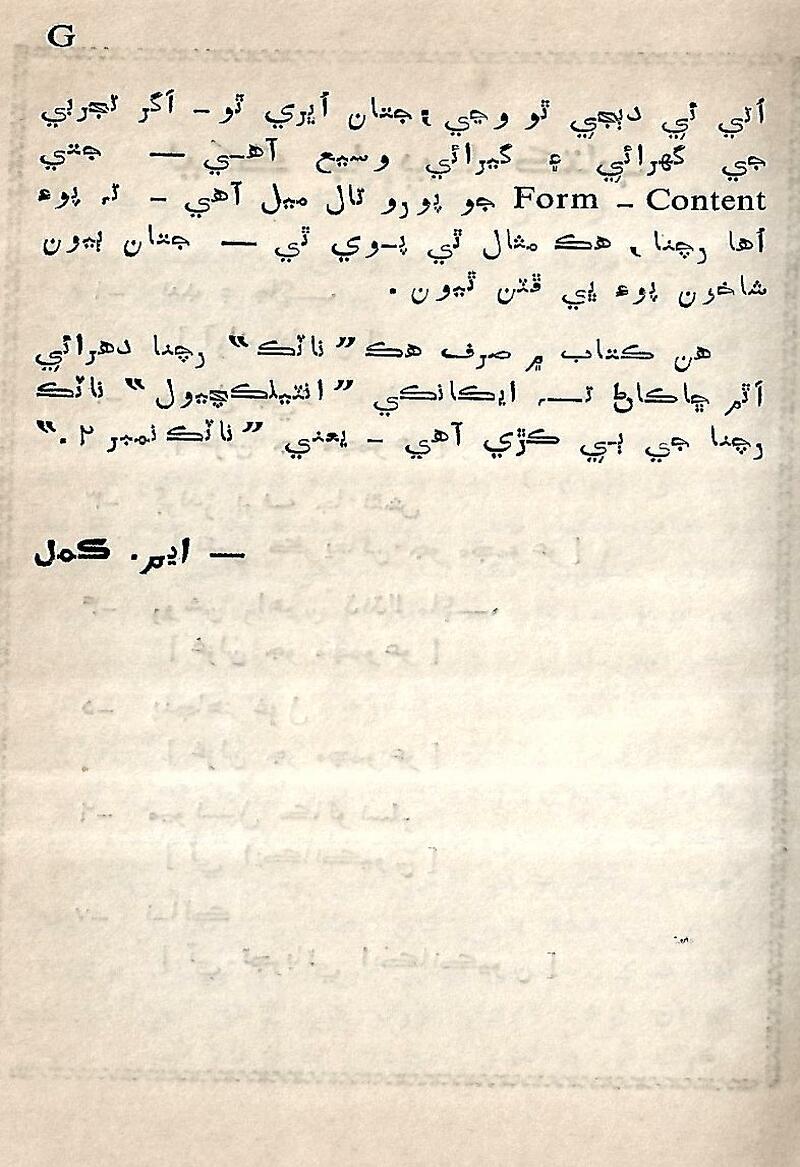 G
اُتي ئي دٻجي ٿو وڃي ۽ جتان اُڀري ٿو - اگر تجربي
جي گهرائي ۽ گيرائي وسيع آهي — جتي
Form – Content جو پورو تال ميل آهي - تہ پوءِ
اُها رچنا، هڪ مثال ٿي پوي ٿي — جتان ٻيون
شاخون پوءِ پي ڦٽن ٿيون.
هن ڪتاب ۾ صرف هڪ ”ناٽڪ“ رچنا دهرائي
اٿم ڇاڪاڻ تہ، ايڪانڪي ”انٽيلڪچيول“ ناٽڪ
رچنا جي ٻي ڪڙي آهي - يعني ”ناٽڪ نمبر ۲.“
— ايم. ڪمل